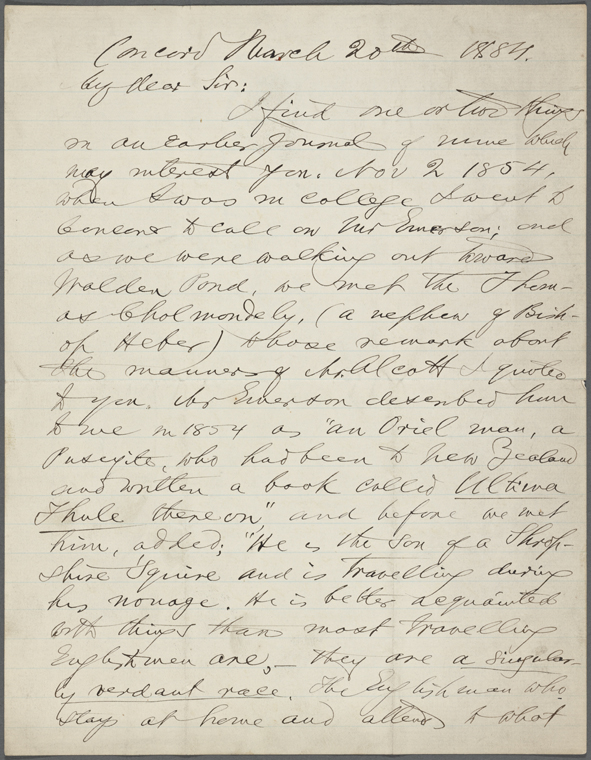 Concord March 20th 1884.
My dear Sir:
I find one or two things
in an earlier Journal of mine which
may interest you. Nov 2 1854,
when I was in college I went to
Concord to call on Mr Emerson; and
as we were walking out toward
Walden Pond, we met the Thom-
as Cholmondely, (a nephew of Bish-
op Heber) whose remark about
the manners of Mr. Alcott I quoted
to you. Mr Emerson described him
to me in 1854 as "an Oriel man, a
Puseyite, who had been to New Zealand
and written a book called Ultima
Thule thereon", and before we met
him, added: "He is the son of a Shrop-
shire Squire and is travelling during
his nonage. He is better acquainted
with things than most travelling
Englishmen are,– they are a singular-
ly verdant race. The Englishman who
stays at home and attends to what